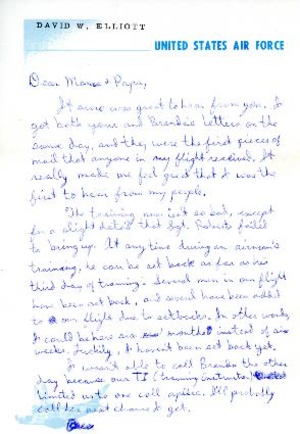 DAVID W. ELLIOTT
UNITED STATES AIR FORCE
Dear Mama & Papa,
It sure was great to hear from you. I
got both yours and Brenda's letters on the
same day, and they were the first pieces of
mail that anyone in my flight received. It
really made me feel great that I was the
first to hear from my people.
The training now isn't so bad, except
for a slight detail that Sgt. Roberts failed
to bring up. At any time during an airman's
training, he can be set back as far as his
third day of training. Several men in our flight
have been set back, and several have been added
to our flight due to setbacks. In other words,
I could be here six months instead of six
weeks. Luckily, I haven't been set back yet.
I wasn't able to call Brenda the other
day because our TI (training instructor)
limited us to one call apiece. I'll probably
call her next chance I get.